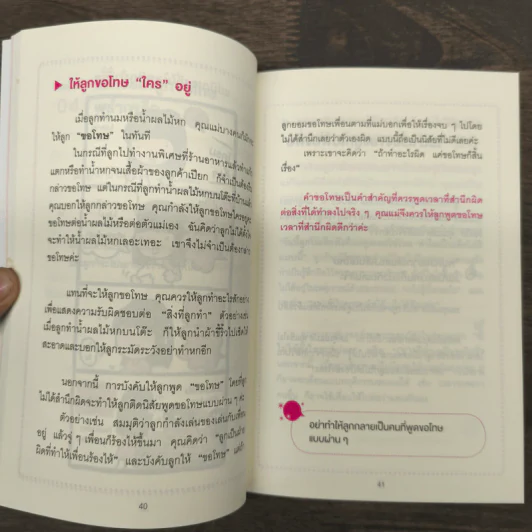 ▶ ให้ลูกขอโทษ "ใคร" อยู่
เมื่อลูกทำนมหรือน้ำผลไม้หก คุณแม่บางคนก็มักจะ
ให้ลูก "ขอโทษ" ในทันที
ในกรณีที่ลูกไปทำงานพิเศษที่ร้านอาหารแล้วทำ
แตกหรือทำน้ำหกจนเสื้อผ้าของลูกค้าเปียก ก็จำเป็นต้อง
กล่าวขอโทษ แต่ในกรณีที่ลูกทำน้ำผลไม้หกบนโต๊ะที่บ้าน
คุณบอกให้ลูกกล่าวขอโทษ คุณกำลังให้ลูกขอโทษใครอยู่
ขอโทษต่อน้ำผลไม้หรือต่อตัวแม่เอง ฉันคิดว่าลูกไม่ได้ตั้งใจ
จะทำให้น้ำผลไม้หกเลอะเทอะ เขาจึงไม่จำเป็นต้องกล่าว
ขอโทษค่ะ
แทนที่จะให้ลูกขอโทษ คุณควรให้ลูกทำอะไรสักอย่าง
เพื่อแสดงความรับผิดชอบต่อ "สิ่งที่ลูกทำ" ตัวอย่างเช่น
เมื่อลูกทำน้ำผลไม้หกบนโต๊ะ ก็ให้ลูกนำผ้าขี้ริ้วไปเช็ดให้
สะอาดและบอกให้ลูกระมัดระวังอย่าทำหกอีก
นอกจากนี้ การบังคับให้ลูกพูด "ขอโทษ" โดยที่ลูก
ไม่ได้สำนึกผิดจะทำให้ลูกติดนิสัยพูดขอโทษแบบผ่าน ๆ ค่ะ
ตัวอย่างเช่น สมมุติว่าลูกกำลังเล่นของเล่นกับเพื่อน
อยู่ แล้วจู่ ๆ เพื่อนก็ร้องไห้ขึ้นมา คุณคิดว่า "ลูกเป็นฝ่าย
ผิดที่ทำให้เพื่อนร้องไห้" และบังคับลูกให้ "ขอโทษ"
40
ลูกยอมขอโทษเพื่อนตามที่แม่บอกเพื่อให้เรื่องจบ ๆ ไปโดย
ไม่ได้สำนึกเลยว่าตัวเองผิด แบบนี้ถือเป็นนิสัยที่ไม่ดีเลยค่ะ
เพราะเขาจะคิดว่า "ถ้าทำอะไรผิด แค่ขอโทษก็สิ้น
เรื่อง"
คำขอโทษเป็นคำสำคัญที่ควรพูดเวลาที่สำนึกผิด
ต่อสิ่งที่ได้ทำลงไปจริง ๆ คุณแม่จึงควรให้ลูกพูดขอโทษ
เวลาที่สำนึกผิดดีกว่าค่ะ
อย่าทำให้ลูกกลายเป็นคนที่พูดขอโทษ
แบบผ่าน ๆ
41